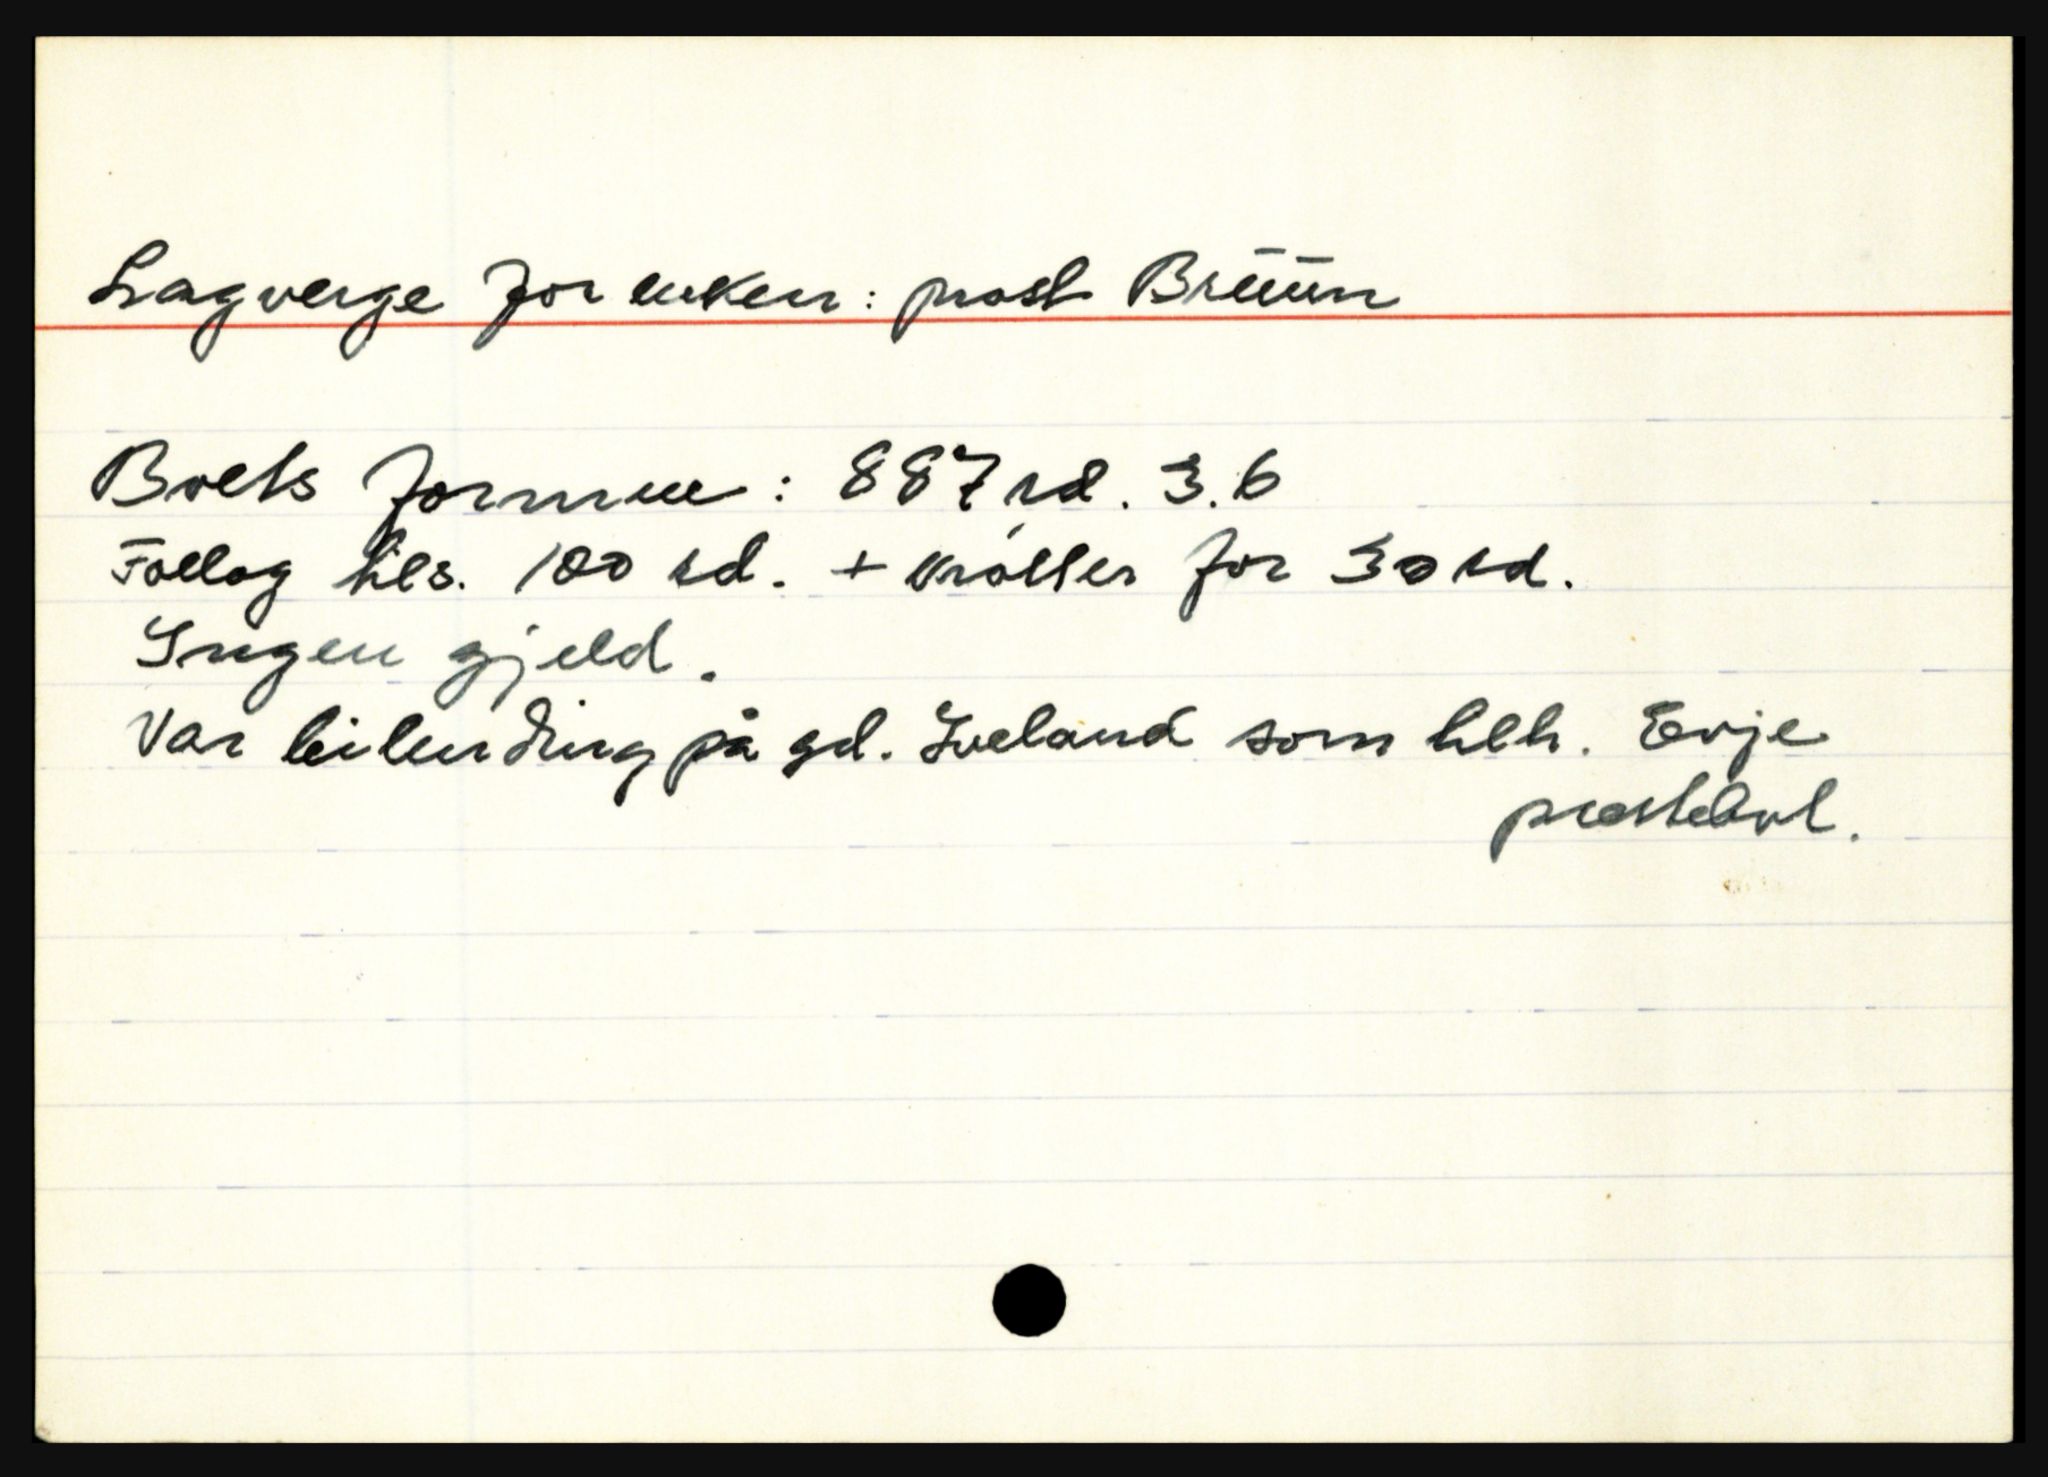 Lagverge for enken: prost Brüün
Boets formue: 887 rd. 3.6
Follog hls. 100 rd. + kröller for 30 rd.
Ingen gjeld.
Var leilending på gd. Iveland som hlh. Evje
prestebol.